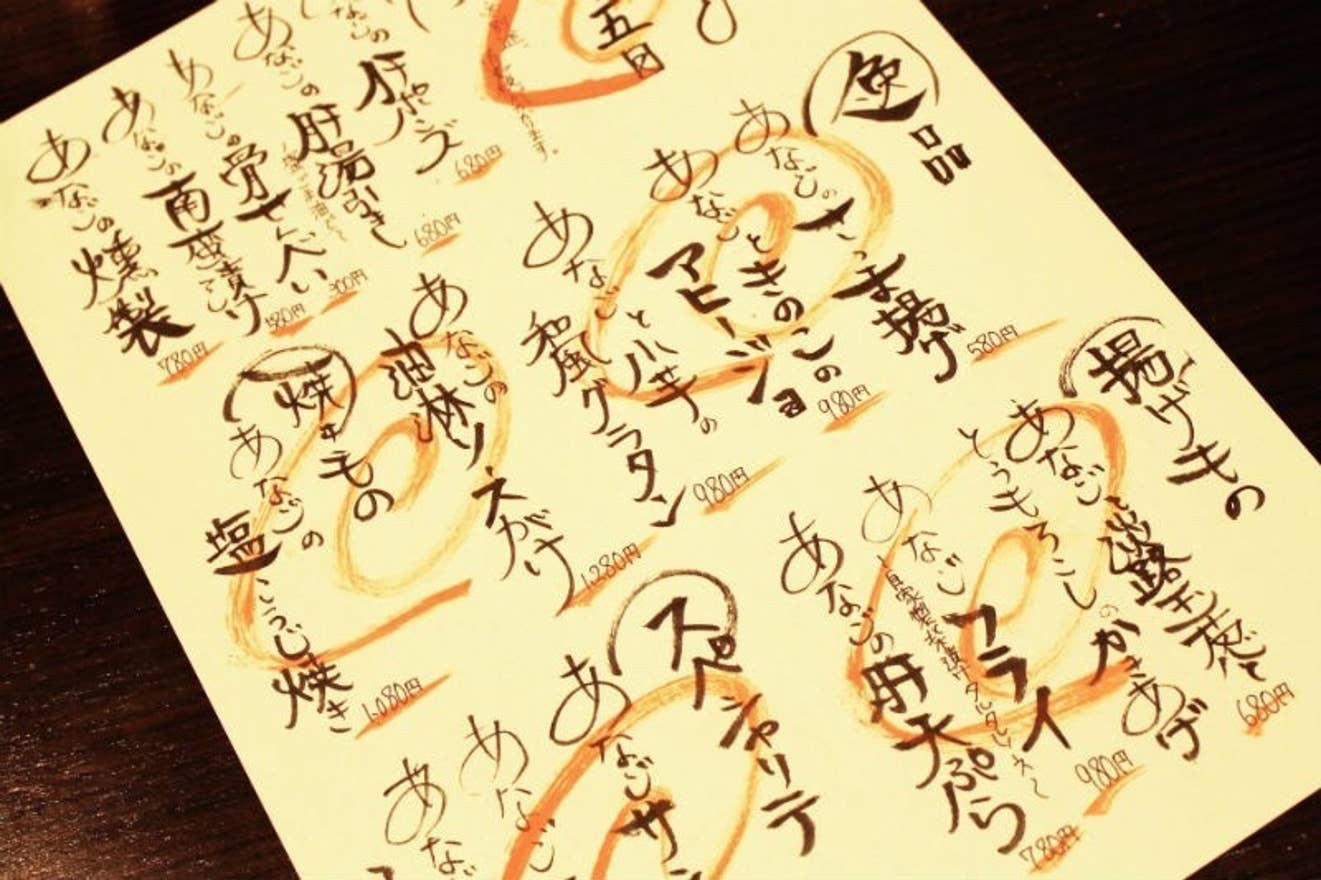 五目
あなごの肝ぽんず
680円
あなごの肝湯引き
680円
あなごの骨せんべい
300円
あなごの南蛮漬け
580円
あなごの燻製
780円
逸品
あなごのさつま揚げ
580円
あなごときのこの
アヒージョ
980円
あなごと小芋の
和風グラタン
980円
あなごの油淋ソースがけ
1,280円
焼きもの
あなごの塩こうじ焼き
1,080円
揚げもの
あなご、淡路玉ねぎ
とうもろこしのかきあげ
680円
あなごフライ
980円
あなごの肝天ぷら
780円
スペシャリテ
あなごサン
あなご
あなご